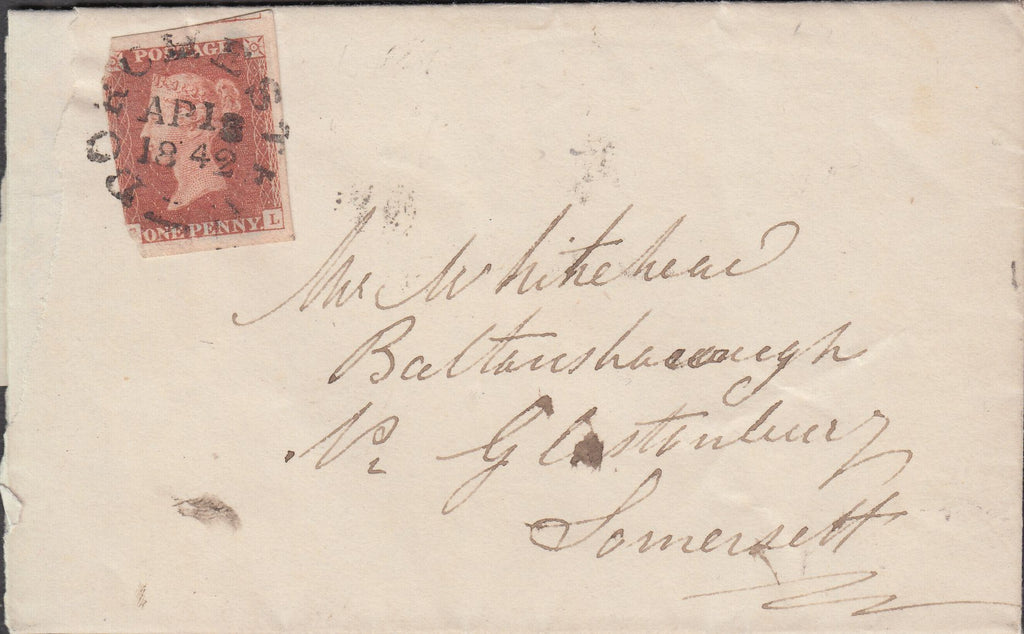 POSTAGE
DORCHESTER
AP 18
1842
ONE PENNY L
Mr Whitehead
Baltonsborough
Nr Glastonbury
Somersett